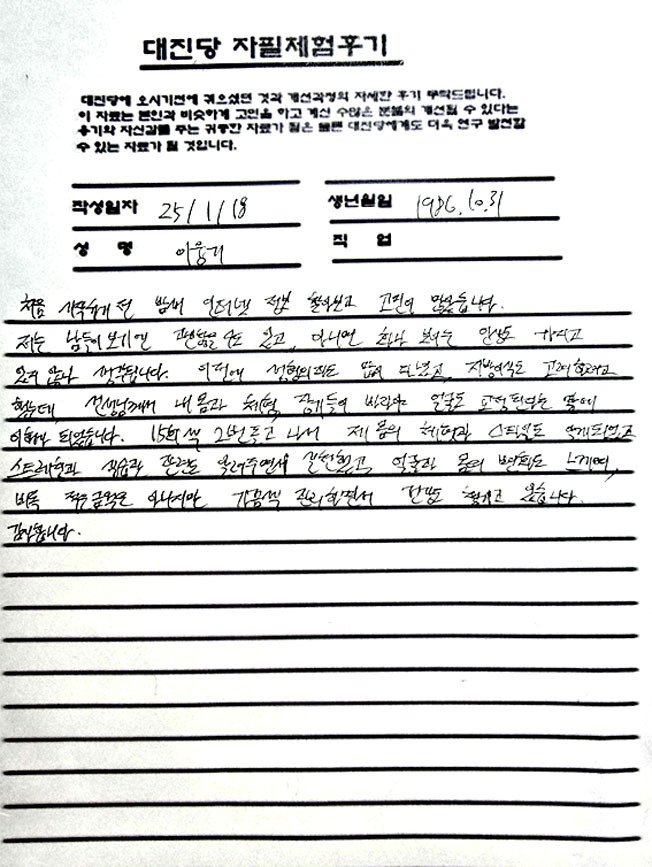 대진당 자필체험후기
대진당에 오시기전에 겪으셨던 것과 개선과정의 자세한 후기 부탁드립니다.
이 자료는 본인과 비슷하게 고민을 하고 계신 수많은 분들의 개선될 수 있다는
용기와 자신감을 주는 귀중한 자료가 됨은 물론 대진당에게도 더욱 연구 발전할
수 있는 자료가 될 것입니다.
작성일자 25/1/18
생년월일 1986.10.31
성 명
직 업
처음 시작하기 전 밤새 인터넷 정보 찾아보고 고민이 많았습니다.
저는 남들이 보기엔 수도 있고, 아니면 화나 보이는 인상도 가지고
있지 않나 생각됩니다. 이전에 성형외과도 많이 다녔고, 지방이식도 고려하려고
했는데, 선생님께서 내 몸과 체형, 얼굴도 교정된다는 말에
되었습니다. 15회씩 2번 듣고 나서 제 몸의 체형과 스타일도 알게되었고
스트레칭과 습관과 관련도 알려주면서 실천했고, 얼굴과 몸의 변화도 느끼며,
비록 적은금액은 아니지만 가끔씩 관리하면서 건강도 챙기고 있습니다.
감사합니다.